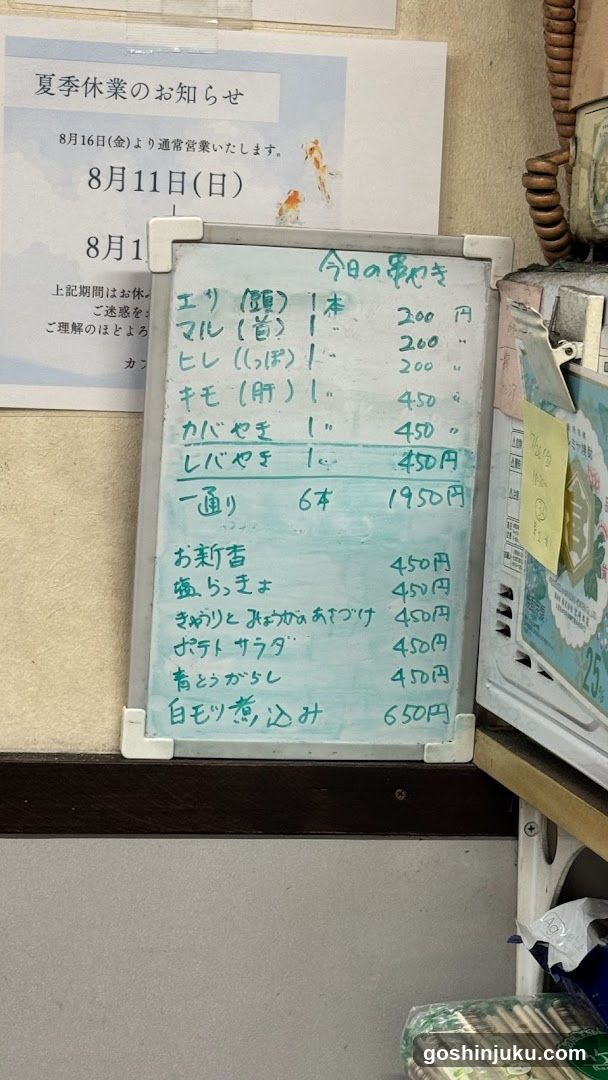 夏季休業のお知らせ
8月16日(金)より通常営業いたします。
8月11日(日)
8月1
上記期間はお休
ご迷惑を
ご理解のほどよろ
カフ
今日の串やき
エリ (頭) 1本 200円
マル (首) 1〃 200〃
ヒレ (しっぽ) 1〃 200〃
キモ (肝) 1〃 450〃
カバやき 1〃 450〃
レバやき 1〃 450円
一通り 6本 1950円
お新香 450円
塩らっきょ 450円
きゅうりとみょうがのあさづけ 450円
ポテトサラダ 450円
青とうがらし 450円
白モツ煮込み 650円
25
Ag
goshinjuku.com